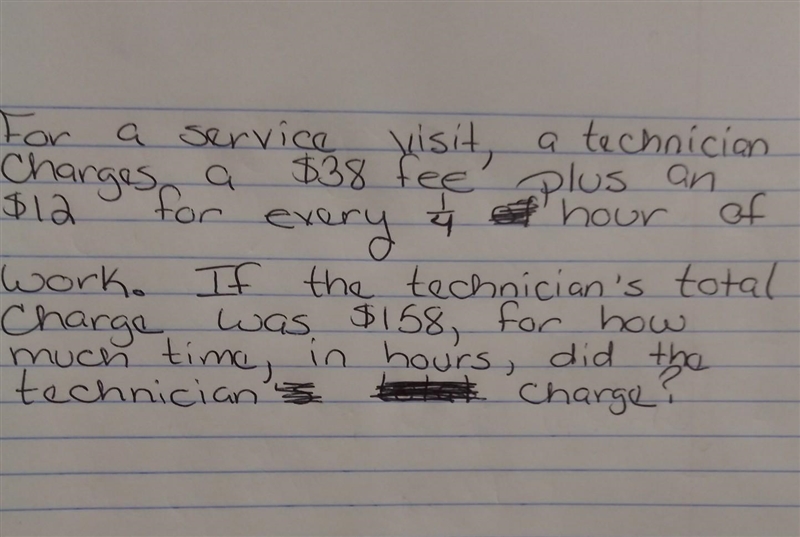 For a service visit, a technician
Charges a $38 fee plus an
$12 for every 1/4 hour of
work. If the technician's total
Charge was $158, for how
much time, in hours, did the
technician charge?